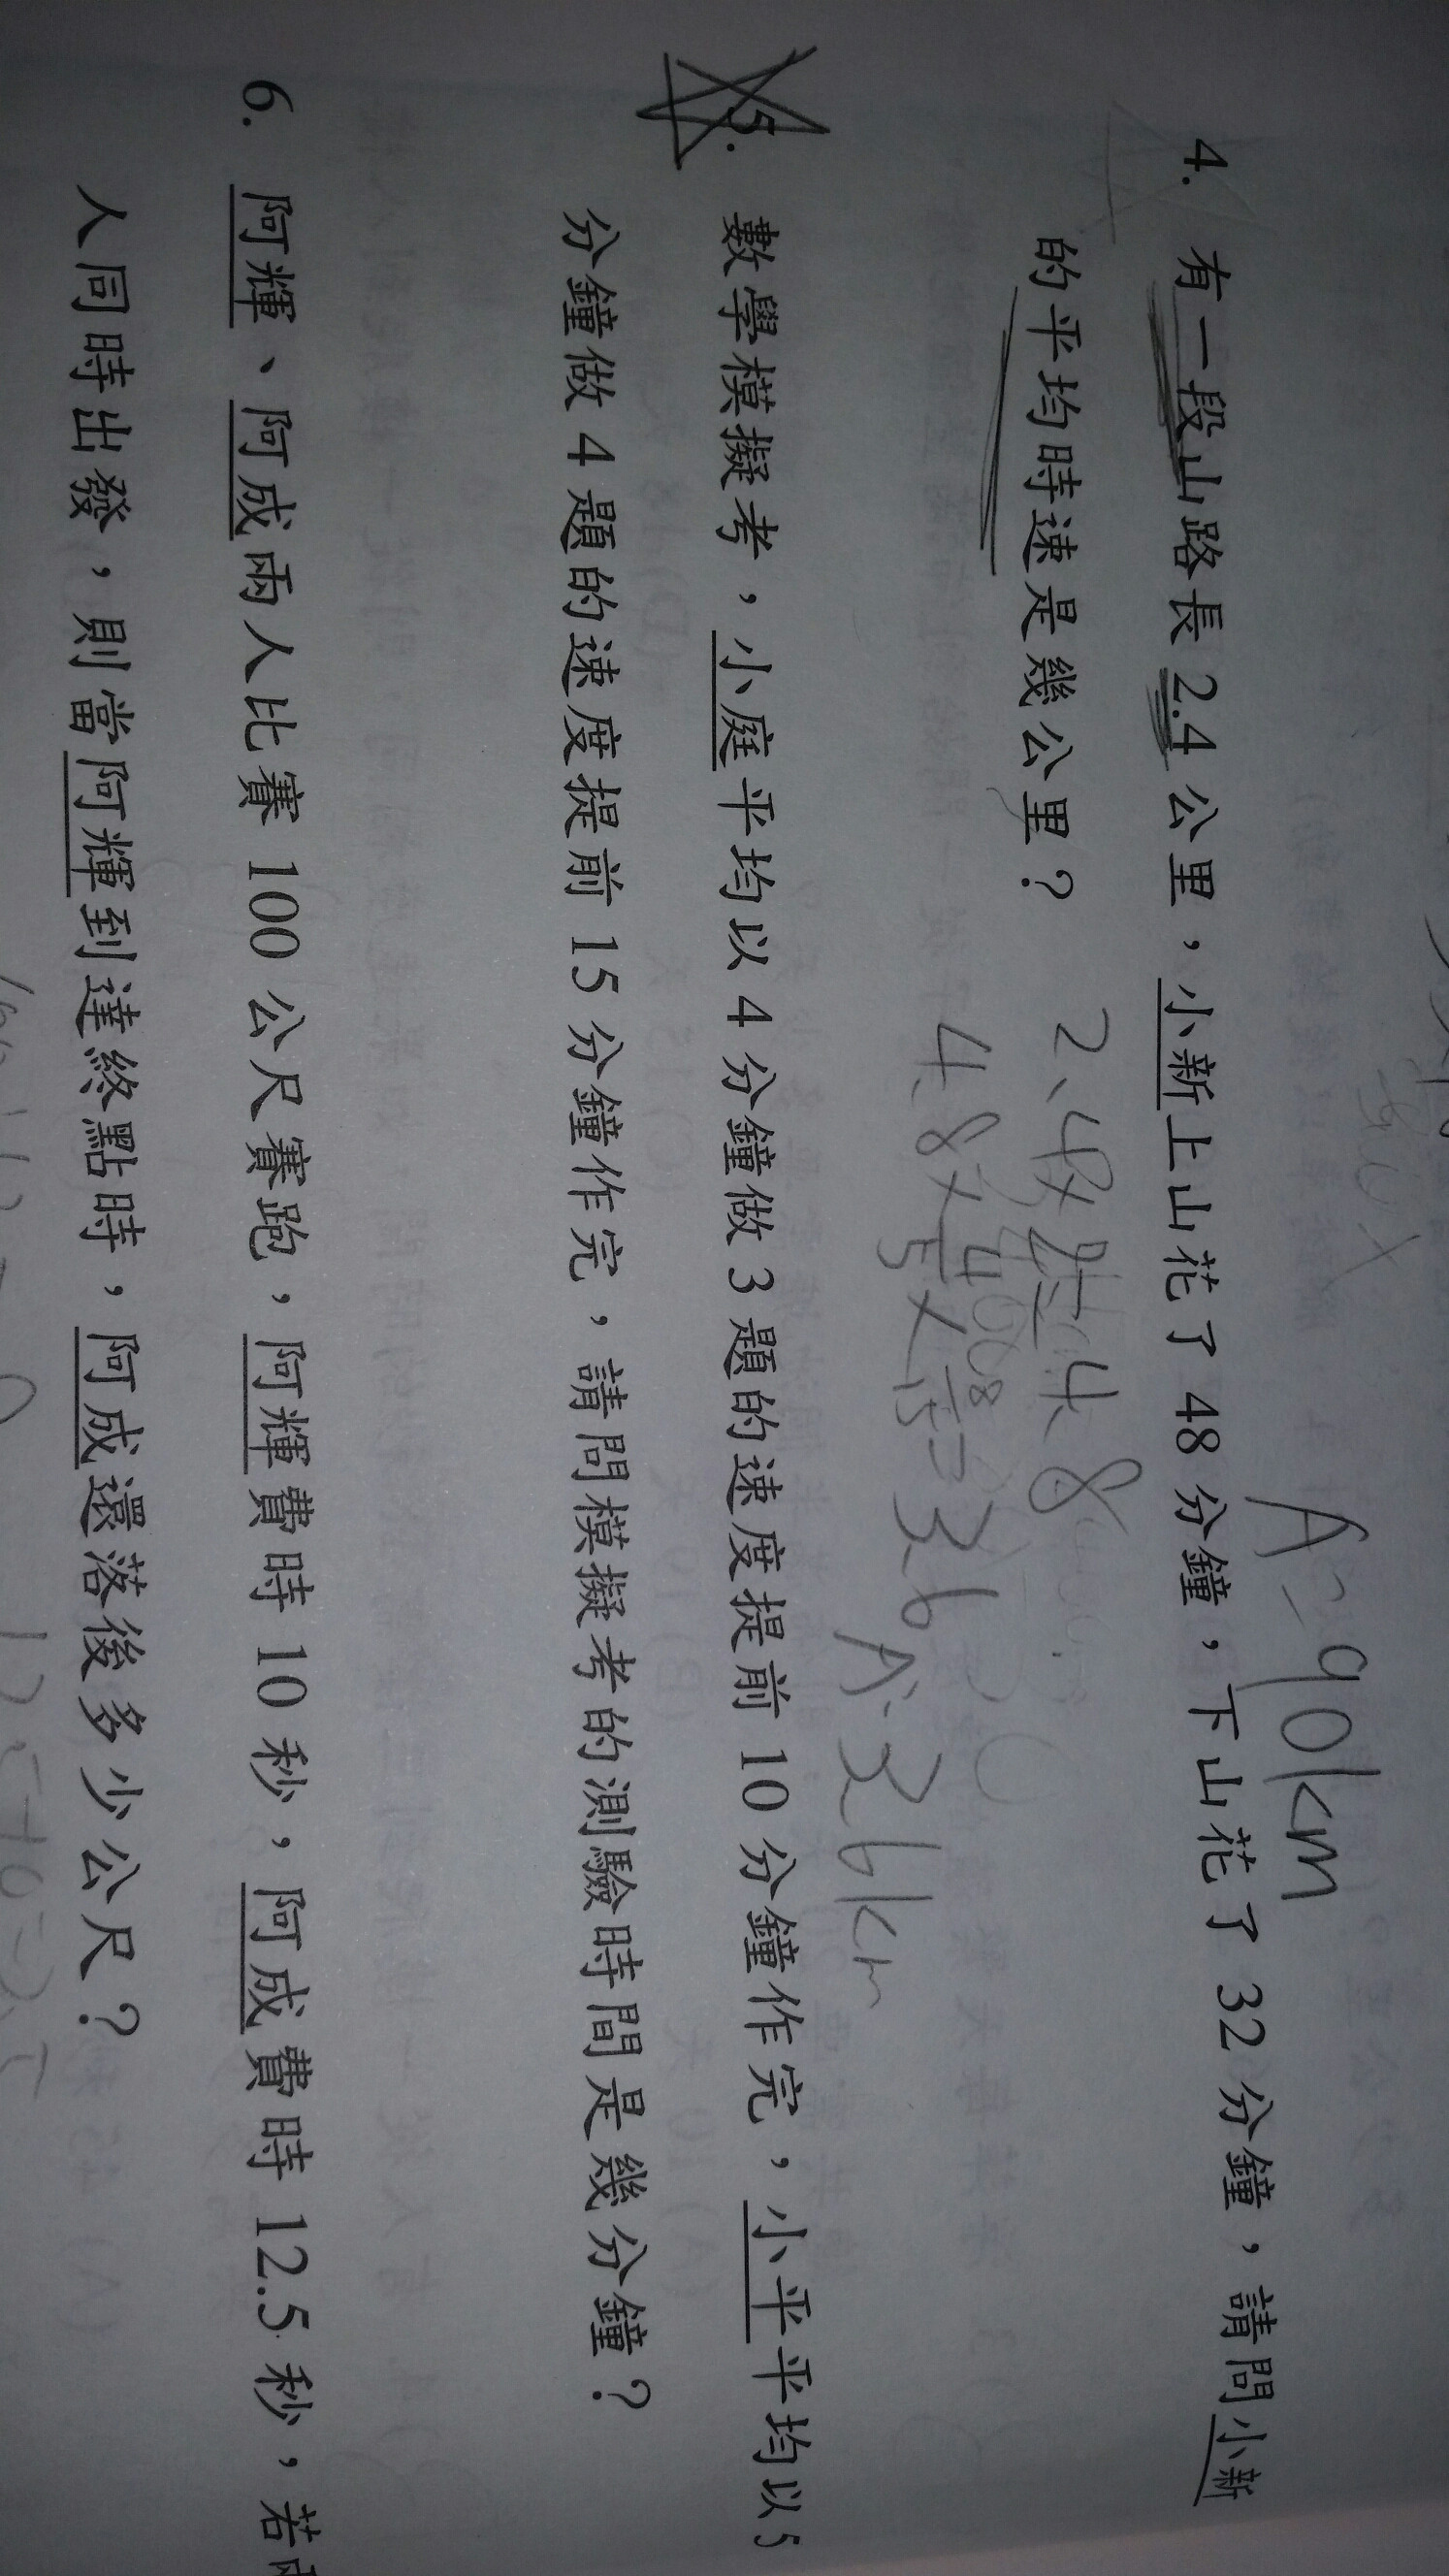 A=90km
4. 有一段山路長 2.4 公里，小新上山花了 48 分鐘，下山花了 32 分鐘，請問小新
的平均時速是幾公里？
2.4×2=4.8
A:3.6km
5. 數學模擬考，小庭平均以 4 分鐘做 3 題的速度提前 10 分鐘作完，小平平均以 5
分鐘做 4 題的速度提前 15 分鐘作完，請問模擬考的測驗時間是幾分鐘？
6. 阿輝、阿成兩人比賽 100 公尺賽跑，阿輝費時 10 秒，阿成費時 12.5 秒，若兩
人同時出發，則當阿輝到達終點時，阿成還落後多少公尺？